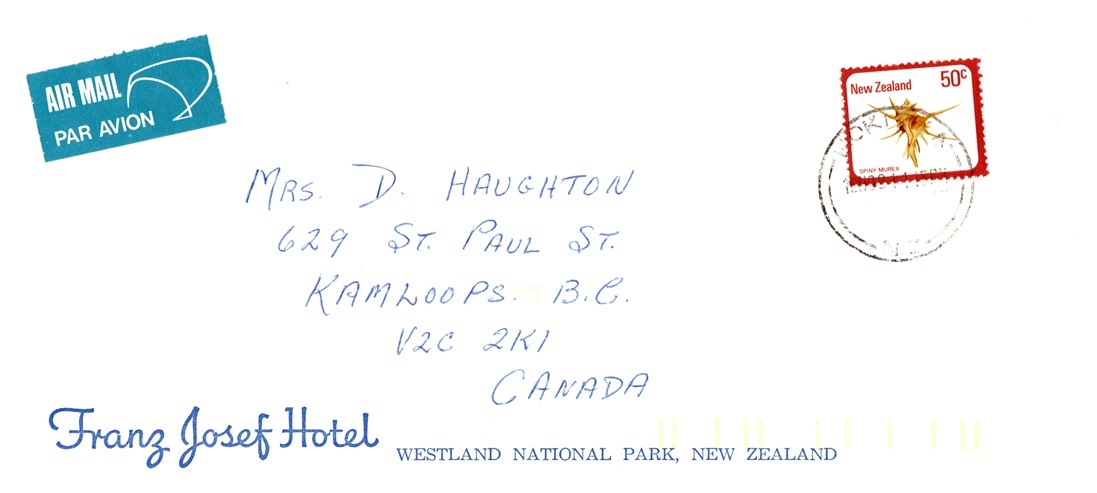 AIR MAIL
PAR AVION
New Zealand 50c
SPINY MUREX
MRS. D. HAUGHTON
629 ST. PAUL ST.
KAMLOOPS. B.C.
V2C 2K1
CANADA
Franz Josef Hotel
WESTLAND NATIONAL PARK, NEW ZEALAND